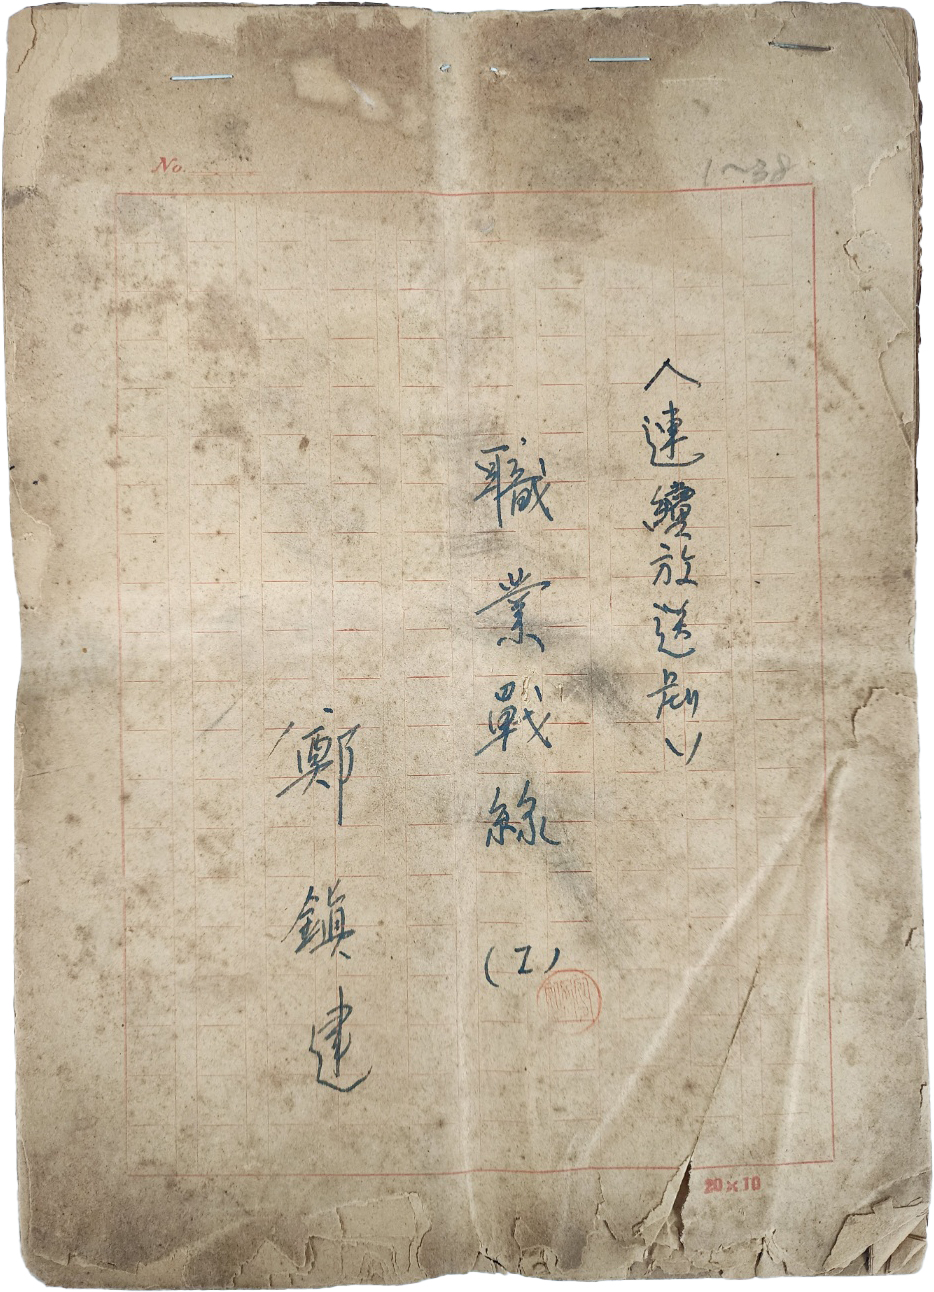 No.
1~38
〈連續放送劇〉
職業戰線(I)
鄭鎮建
20×10